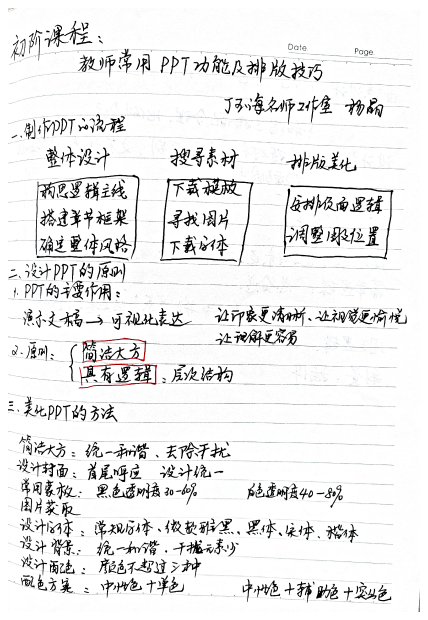 初阶课程:
Date Page
教师常用PPT功能及排版技巧
名师工作室 杨晶
一.制作PPT的流程
整体设计 搜寻素材 排版美化
构思逻辑主线 下载模板 安排版面逻辑
搭建章节框架 寻找图片 调整图及位置
确定整体风格 下载字体
二.设计PPT的原则
1.PPT的主要作用:
演示文稿→可视化表达 让印象更清晰、让视觉更愉悦
让理解更容易
2.原则: 简洁大方
具有逻辑:层次结构
三.美化PPT的方法
简洁大方:统一和谐、去除干扰
设计封面:首尾呼应 设计统一
常用蒙板:黑色透明度30-60% 白色透明度40-80%
图片获取
设计字体:常规字体、微软雅黑、黑体、宋体、楷体
设计背景:统一和谐、干扰元素少
设计配色:颜色不超过三种
配色方案:中性色+单色 中性色+辅助色+突出色